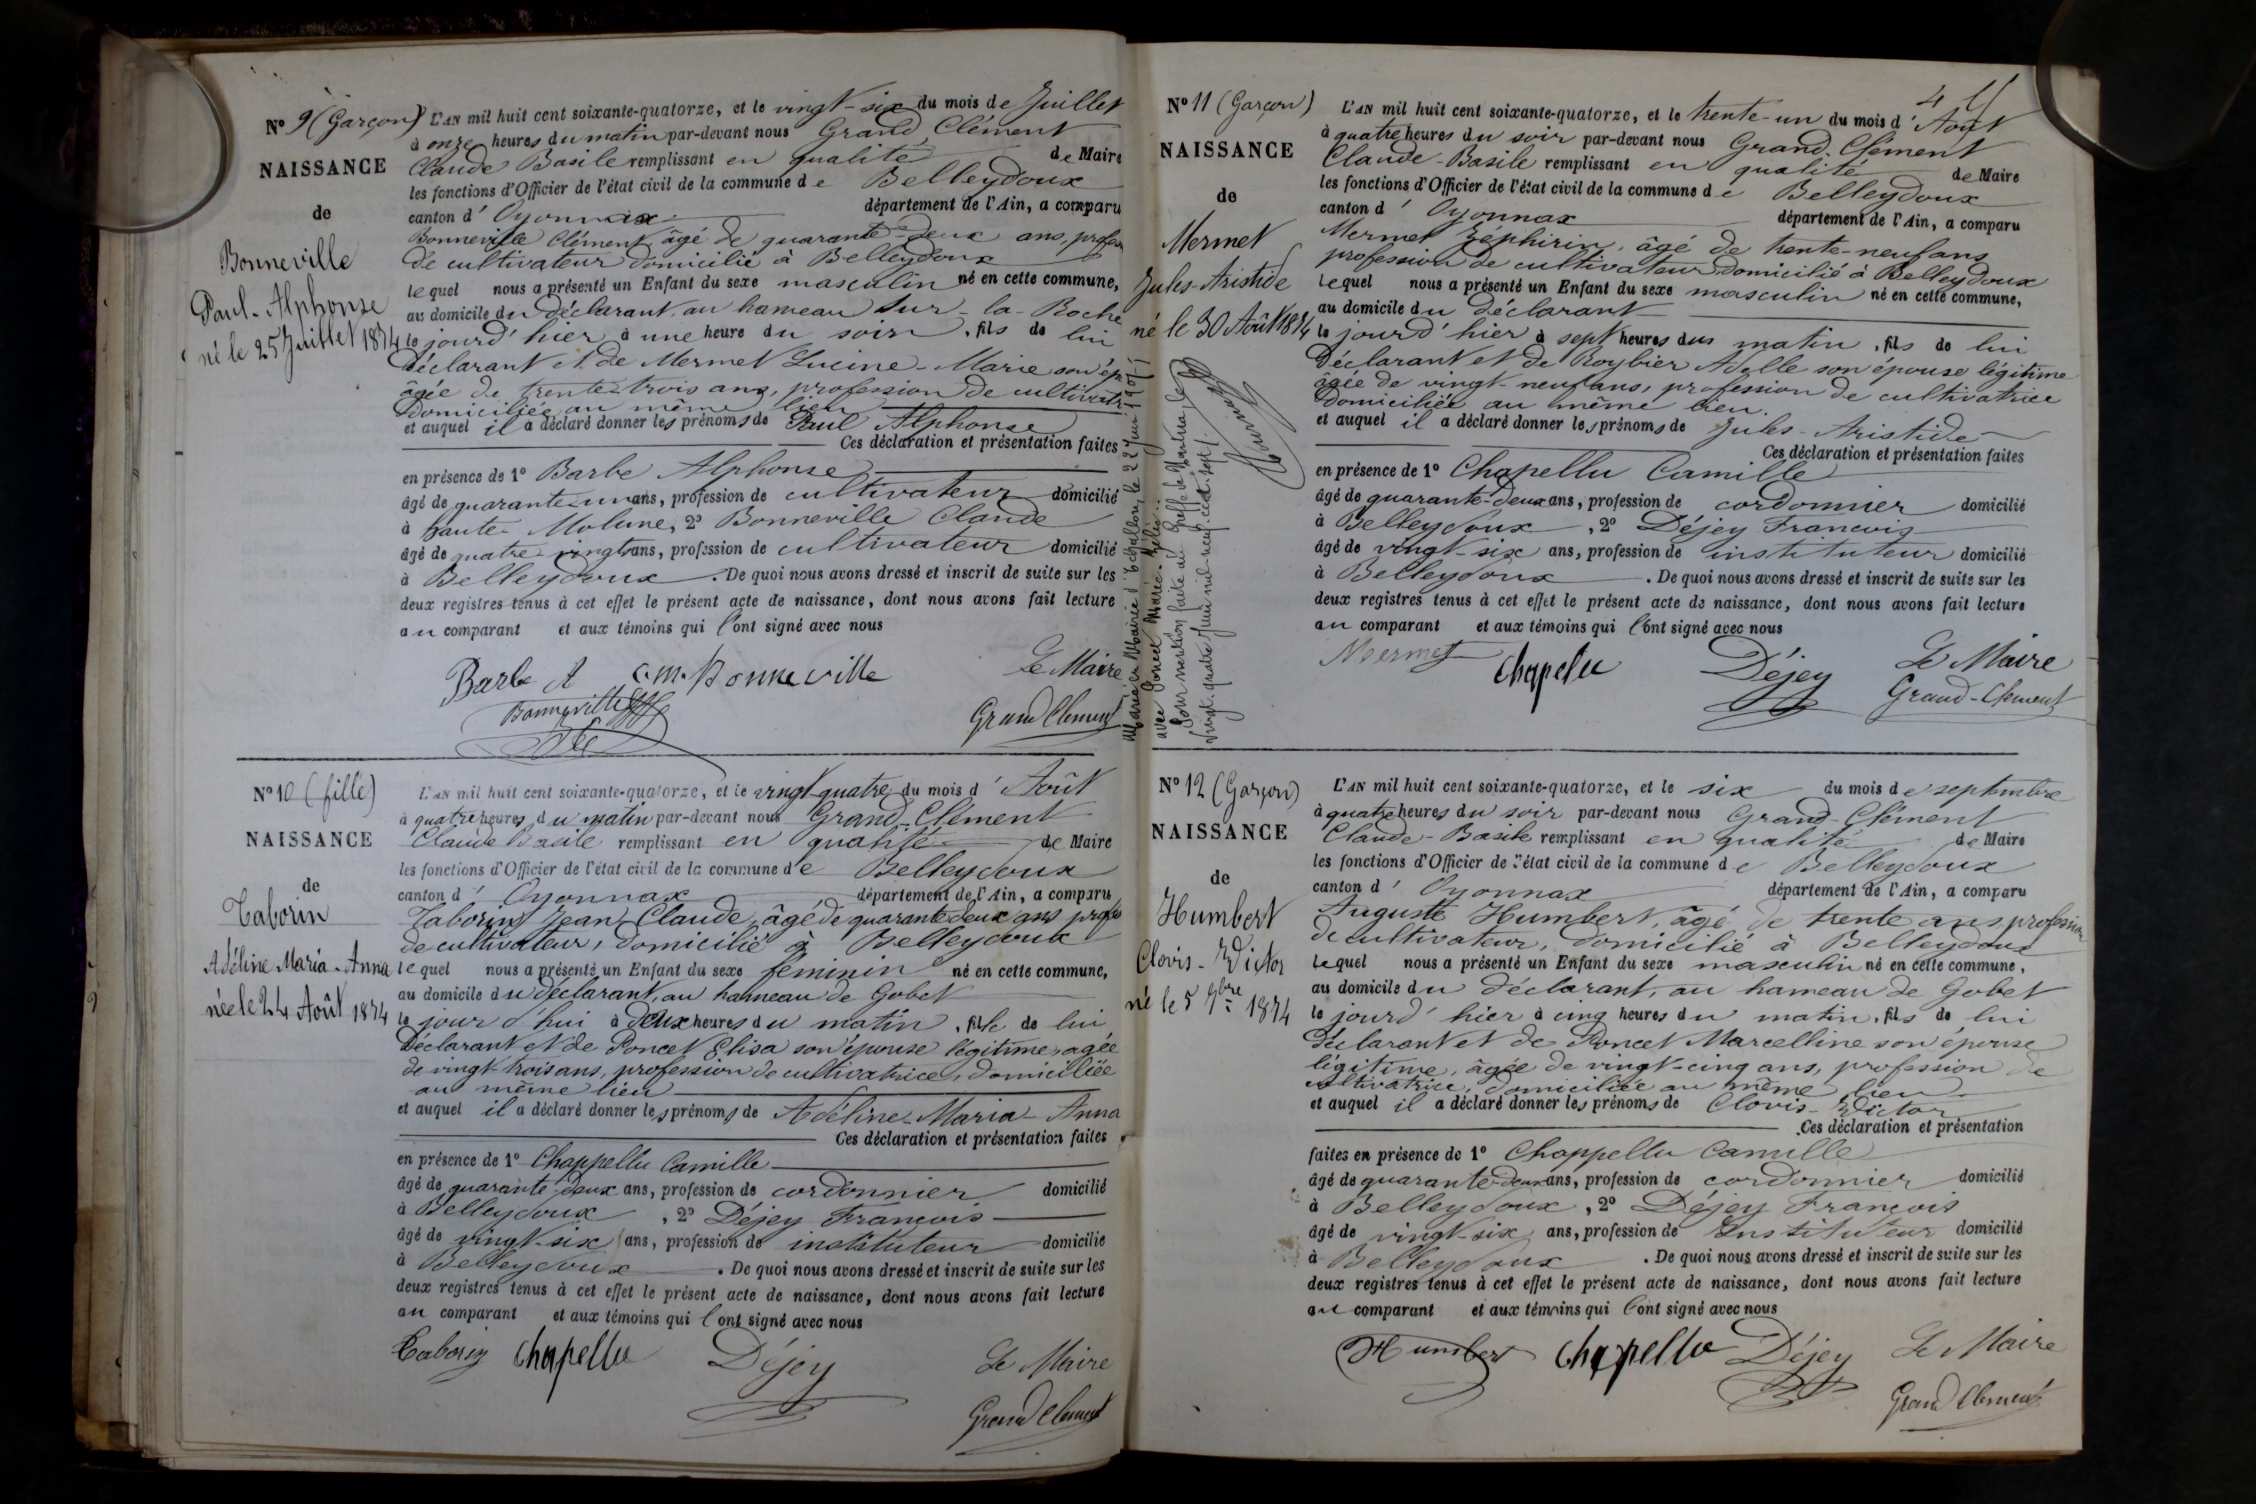 N° 9 (Garçon)
NAISSANCE
de
Bonneville
Paul-Alphonse
né le 25 Juillet 1874
L'AN mil huit cent soixante-quatorze, et le vingt-six du mois de Juillet
à onze heures du matin par-devant nous Grand Clément
Claude Basile remplissant en qualité de Maire
les fonctions d'Officier de l'état civil de la commune de Belleydoux
canton d' Oyonnax département de l'Ain, a comparu
Bonneville Clément, âgé de quarante-deux ans, profession
de cultivateur domicilié à Belleydoux
lequel nous a présenté un Enfant du sexe masculin né en cette commune,
au domicile du déclarant, au hameau Sur-la-Roche
le jourd'hier à une heure du soir, fils de lui
déclarant et de Mermet Lucine-Marie son ép
âgée de trente-trois ans, profession de cultivatr
domiciliée au même lieu
et auquel il a déclaré donner les prénoms de Paul Alphonse
Ces déclaration et présentation faites
en présence de 1° Barbe Alphonse
âgé de quarante-un ans, profession de cultivateur domicilié
à haute-Molune, 2° Bonneville Claude
âgé de quatre-vingt ans, profession de cultivateur domicilié
à Belleydoux. De quoi nous avons dressé et inscrit de suite sur les
deux registres tenus à cet effet le présent acte de naissance, dont nous avons fait lecture
au comparant et aux témoins qui l'ont signé avec nous
Barbe A Bonneville Le Maire
Bonneville Grand Clement
N° 10 (fille)
NAISSANCE
de
Taborin
Adéline Maria-Anna
née le 24 Août 1874
L'AN mil huit cent soixante-quatorze, et le vingt-quatre du mois d' Août
à quatre heures du matin par-devant nous Grand-Clément
Claude Basile remplissant en qualité de Maire
les fonctions d'Officier de l'état civil de la commune de Belleydoux
canton d' Oyonnax département de l'Ain, a comparu
Taborin Jean Claude, âgé de quarante deux ans profes
de cultivateur, domicilié à Belleydoux
lequel nous a présenté un Enfant du sexe féminin né en cette commune,
au domicile du déclarant, au hameau de Gobet
le jour d'hui à deux heures du matin, fille de lui
Déclarant et de Poncet Elisa son épouse légitime, agée
de vingt-trois ans, profession de cultivatrice, domiciliée
au même lieu
et auquel il a déclaré donner les prénoms de Adéline-Maria-Anna
Ces déclaration et présentation faites
en présence de 1° Chappellu Camille
âgé de quarante-deux ans, profession de cordonnier domicilié
à Belleydoux, 2° Déjey François
âgé de vingt-six ans, profession de instituteur domicilié
à Belleydoux. De quoi nous avons dressé et inscrit de suite sur les
deux registres tenus à cet effet le présent acte de naissance, dont nous avons fait lecture
au comparant et aux témoins qui l'ont signé avec nous
Taborin Chapellu Déjey Le Maire
Grand Clement
4
N° 11 (Garçon)
NAISSANCE
de
Mermet
Jules-Aristide
né le 30 Août 1874
Marié à la Mairie d'Échallon, le 22 Juin 1907
avec Poncet Marie-Zélie.
Pour mention faite au Greffe de Nantua, le
vingt-quatre Juin mil-neuf-cent-sept.
L'AN mil huit cent soixante-quatorze, et le trente-un du mois d' Août
à quatre heures du soir par-devant nous Grand-Clément
Claude-Basile remplissant en qualité de Maire
les fonctions d'Officier de l'état civil de la commune de Belleydoux
canton d' Oyonnax département de l'Ain, a comparu
Mermet Zéphirin, âgé de trente-neuf ans
profession de cultivateur domicilié à Belleydoux
lequel nous a présenté un Enfant du sexe masculin né en cette commune,
au domicile du déclarant
le jourd'hier à sept heures du matin, fils de lui
Déclarant et de Roybier Adelle son épouse légitime
agée de vingt-neuf ans, profession de cultivatrice
domiciliée au même lieu.
et auquel il a déclaré donner les prénoms de Jules-Aristide
Ces déclaration et présentation faites
en présence de 1° Chapellu Camille
âgé de quarante-deux ans, profession de cordonnier domicilié
à Belleydoux, 2° Déjey François
âgé de vingt-six ans, profession de instituteur domicilié
à Belleydoux. De quoi nous avons dressé et inscrit de suite sur les
deux registres tenus à cet effet le présent acte de naissance, dont nous avons fait lecture
au comparant et aux témoins qui l'ont signé avec nous
Mermet Chapellu Déjey Le Maire
Grand-Clement
N° 12 (Garçon)
NAISSANCE
de
Humbert
Clovis-Victor
né le 5 7bre 1874
L'AN mil huit cent soixante-quatorze, et le six du mois de septembre
à quatre heures du soir par-devant nous Grand-Clément
Claude-Basile remplissant en qualité de Maire
les fonctions d'Officier de l'état civil de la commune de Belleydoux
canton d' Oyonnax département de l'Ain, a comparu
Auguste Humbert, âgé de trente ans profession
de cultivateur, domicilié à Belleydoux
lequel nous a présenté un Enfant du sexe masculin né en cette commune,
au domicile du déclarant, au hameau de Gobet
le jourd'hier à cinq heures du matin, fils de lui
déclarant et de Poncet Marcelline son épouse
légitime, âgée de vingt-cinq ans, profession de
cultivatrice, domiciliée au même lieu
et auquel il a déclaré donner les prénoms de Clovis-Victor
Ces déclaration et présentation
faites en présence de 1° Chappellu Camille
âgé de quarante-deux ans, profession de cordonnier domicilié
à Belleydoux, 2° Déjey François
âgé de vingt-six ans, profession de Instituteur domicilié
à Belleydoux. De quoi nous avons dressé et inscrit de suite sur les
deux registres tenus à cet effet le présent acte de naissance, dont nous avons fait lecture
au comparant et aux témoins qui l'ont signé avec nous
Humbert Chapellu Déjey Le Maire
Grand Clement